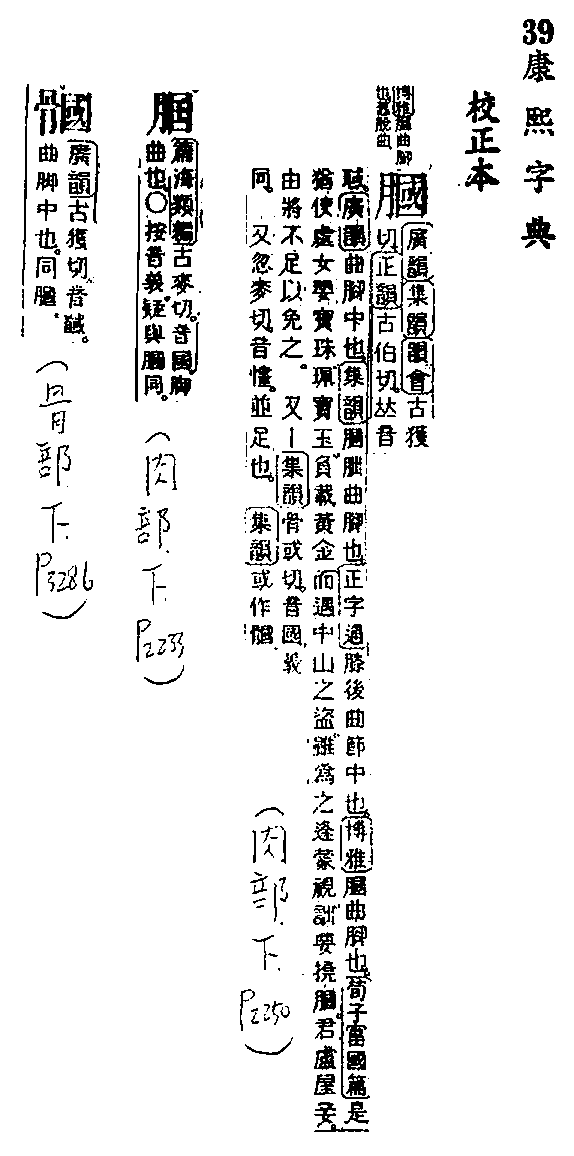 39 康熙字典
校正本
博雅膕曲脚
膕 廣韻集韻韻會古獲
切正韻古伯切𠀤音
聝。廣韻曲脚中也集韻膕曲脚也正字通膝後曲節中也博雅膕曲脚也荀子富國篇是
猶使處女嬰寶珠珮寶玉負戴黃金而遇中山之盜雖爲之逢蒙視詘要撓膕君盧屋妾。
由將不足以免之。又丨集韻骨或切。音國義
同。又忽麥切音。並足也。集韻或作
(肉部.下.P2250)
腘 篇海類編古麥切。音國。脚
曲也○按音義疑與膕同。
(肉部.下.P2233)
廣韻古獲切音聝。
曲脚中也。同膕
(骨部下.P3286)